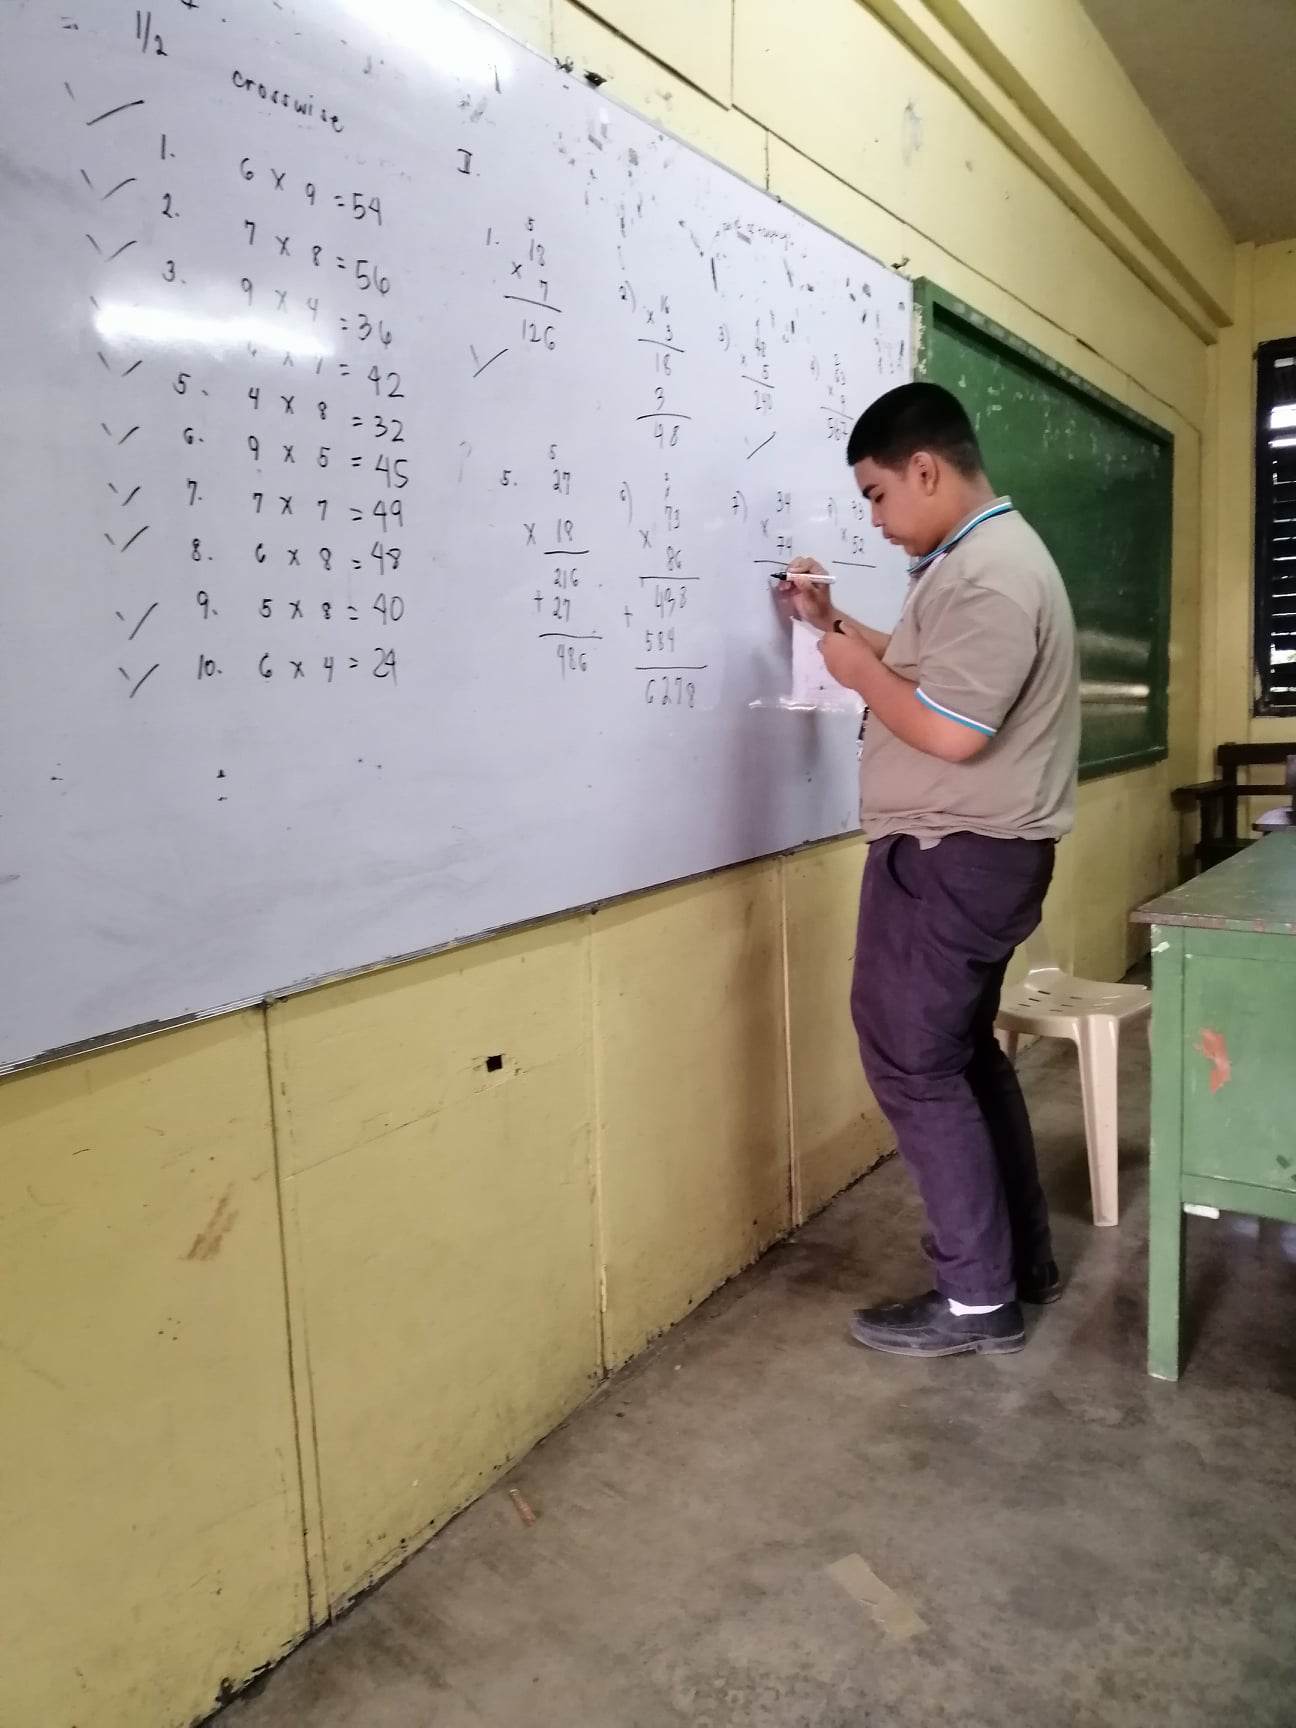 1/2
crosswise
1. 6 x 9 = 54
2. 7 x 8 = 56
3. 9 x 4 = 36
= 42
5. 4 x 8 = 32
6. 9 x 5 = 45
7. 7 x 7 = 49
8. 6 x 8 = 48
9. 5 x 8 = 40
10. 6 x 4 = 24
II.
1.
5
18
x 7
126
2)
x 16
3
18
3
48
3)
48
x 5
240
4)
63
x 9
567
5.
5
27
x 18
216
+ 27
486
6)
73
x 86
438
+ 584
6278
7)
34
x 74
x 52